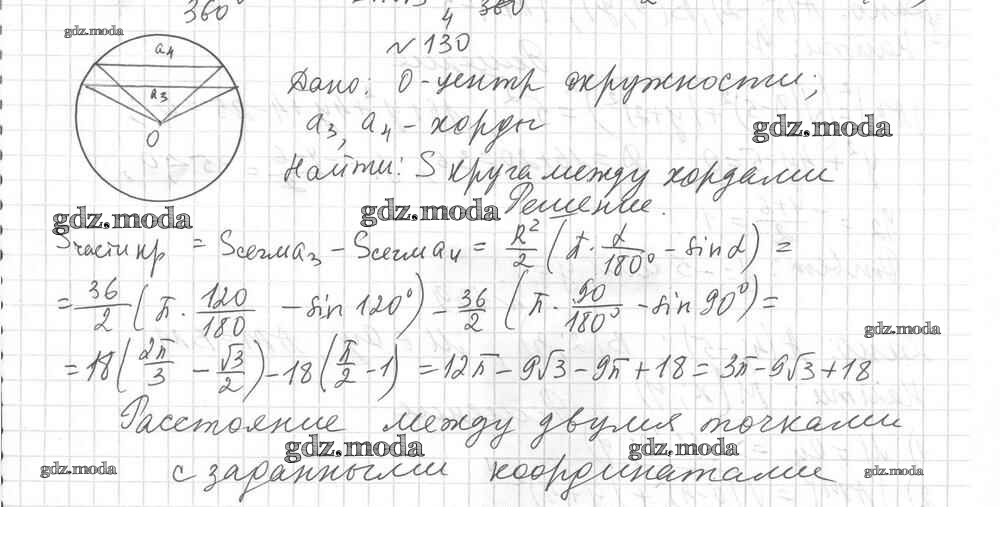 360°
4 360
2
gdz.moda
№130
a4
a3
O
Дано: O-центр окружности;
a3, a4 - хорды
gdz.moda
Найти: S круга между хордами
gdz.moda gdz.moda
Решение.
Sчасти кр = Sсегм a3 - Sсегм a4 = R²/2 (π · α/180° - sin α) =
= 36/2 (π · 120/180 - sin 120°) - 36/2 (π · 90/180° - sin 90°) =
gdz.moda
= 18 (2π/3 - √3/2) - 18 (π/2 - 1) = 12π - 9√3 - 9π + 18 = 3π - 9√3 + 18
Расстояние между двумя точками
gdz.moda gdz.moda
с заданными координатами
gdz.moda gdz.moda